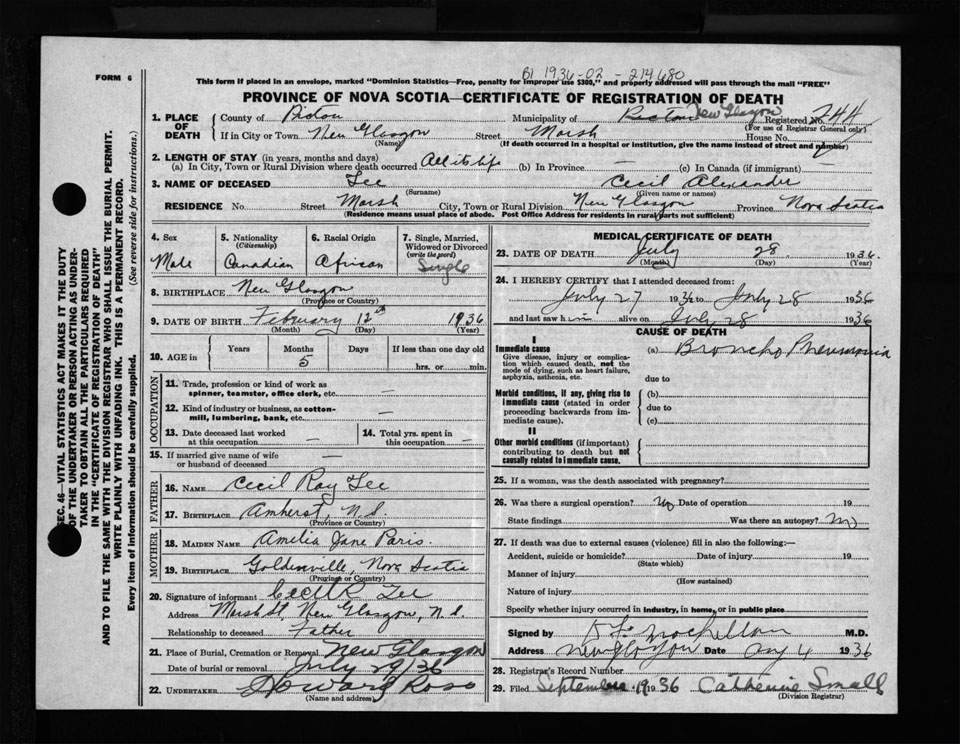 FORM 6
B1 1936-02 - 214680
This form if placed in an envelope, marked "Dominion Statistics—Free, penalty for improper use $300," and properly addressed will pass through the mail "FREE"
PROVINCE OF NOVA SCOTIA—CERTIFICATE OF REGISTRATION OF DEATH
1. PLACE OF DEATH
County of Pictou Municipality of Pictou New Glasgow Registered No. 744
(For use of Registrar General only)
If in City or Town New Glasgow Street Marsh House No.
(Name) (If death occurred in a hospital or institution, give the name instead of street and number)
2. LENGTH OF STAY (in years, months and days)
(a) In City, Town or Rural Division where death occurred All its life (b) In Province — (c) In Canada (if immigrant) —
3. NAME OF DECEASED Lee Cecil Alexander
(Surname) (Given name or names)
RESIDENCE No. Street Marsh City, Town or Rural Division New Glasgow Province Nova Scotia
(Residence means usual place of abode. Post Office Address for residents in rural parts not sufficient)
4. Sex
Male
5. Nationality
(Citizenship)
Canadian
6. Racial Origin
African
7. Single, Married, Widowed or Divorced
(write the word)
Single
8. BIRTHPLACE New Glasgow
(Province or Country)
9. DATE OF BIRTH February 12th 1936
(Month) (Day) (Year)
10. AGE in
Years Months Days If less than one day old
5
hrs. or min.
OCCUPATION
11. Trade, profession or kind of work as spinner, teamster, office clerk, etc. —
12. Kind of industry or business, as cotton-mill, lumbering, bank, etc. —
13. Date deceased last worked at this occupation —
14. Total yrs. spent in this occupation —
15. If married give name of wife or husband of deceased —
FATHER
16. NAME Cecil Ray Lee
17. BIRTHPLACE Amherst, N.S.
(Province or Country)
MOTHER
18. MAIDEN NAME Amelia Jane Paris.
19. BIRTHPLACE Goldenville, Nova Scotia
(Province or Country)
20. Signature of informant Cecil R Lee
Address Marsh St, New Glasgow, N.S.
Relationship to deceased Father
21. Place of Burial, Cremation or Removal New Glasgow
Date of burial or removal July 29/36
22. UNDERTAKER Howard Ross
(Name and address)
MEDICAL CERTIFICATE OF DEATH
23. DATE OF DEATH July 28 1936.
(Month) (Day) (Year)
24. I HEREBY CERTIFY that I attended deceased from:
July 27 1936 to July 28 1936
and last saw him alive on July 28 1936
CAUSE OF DEATH
I
Immediate cause
Give disease, injury or complication which caused death, not the mode of dying, such as heart failure, asphyxia, asthenia, etc.
(a) Broncho Pneumonia
due to
Morbid conditions, if any, giving rise to immediate cause (stated in order proceeding backwards from immediate cause).
(b)
due to
(c)
II
Other morbid conditions (if important) contributing to death but not causally related to immediate cause.
25. If a woman, was the death associated with pregnancy?
26. Was there a surgical operation? No Date of operation 19
State findings Was there an autopsy? No
27. If death was due to external causes (violence) fill in also the following:—
Accident, suicide or homicide? Date of injury 19
(State which)
Manner of injury
(How sustained)
Nature of injury
Specify whether injury occurred in industry, in home, or in public place
Signed by M.D.
Address New Glasgow Date Aug 4 1936
28. Registrar's Record Number
29. Filed September 19 1936 Catherine Small
(Division Registrar)
SEC. 46—VITAL STATISTICS ACT MAKES IT THE DUTY
OF THE UNDERTAKER OR PERSON ACTING AS UNDER-
TAKER TO OBTAIN ALL THE PARTICULARS REQUIRED
IN THE "CERTIFICATE OF REGISTRATION OF DEATH"
AND TO FILE THE SAME WITH THE DIVISION REGISTRAR WHO SHALL ISSUE THE BURIAL PERMIT.
WRITE PLAINLY WITH UNFADING INK. THIS IS A PERMANENT RECORD.
Every item of information should be carefully supplied. (See reverse side for instructions.)